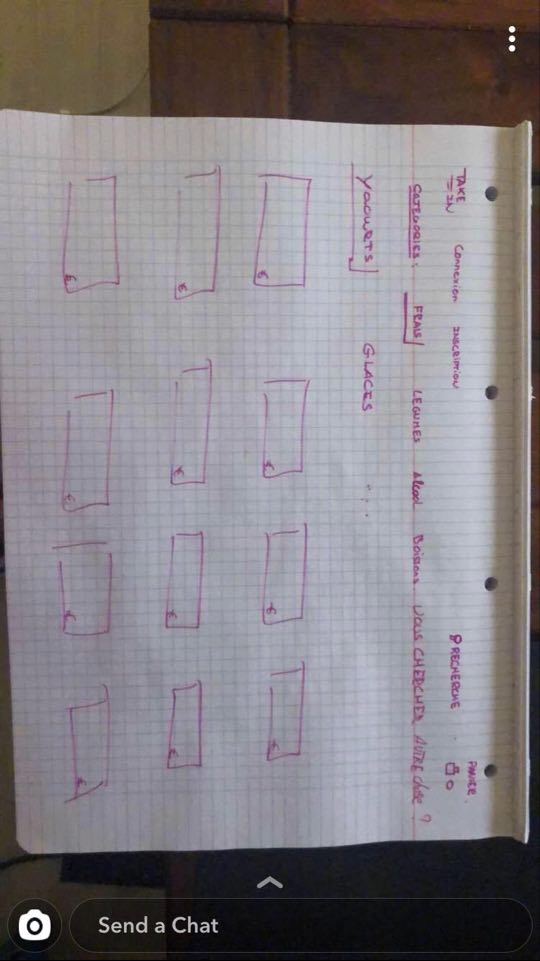 PANIER
TAKE Connexion INSCRIPTION RECHERCHE
IN
CATEGORIES: FRAIS LEGUMES Alcool Boissons VOUS CHERCHER AUTRE chose ?
YAOURTS GLACES ...
€ € € €
€ € € €
€ € € €
Send a Chat